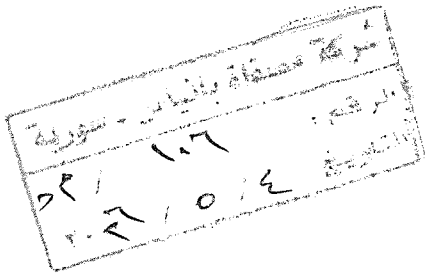 شركة مصفاة بانياس - سورية
الرقم : ١٠٦ /
التاريخ ٤ / ٥ / ٢٠٢٦